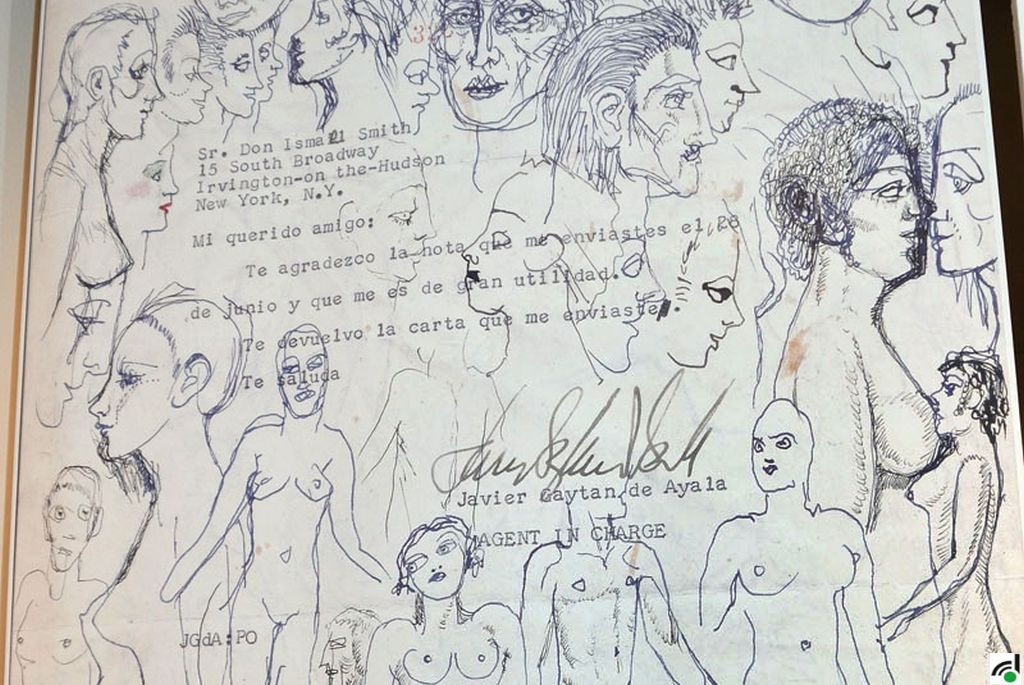 Sr. Don Ismael Smith
15 South Broadway
Irvington-on the-Hudson
New York, N.Y.
Mi querido amigo:
Te agradezco la nota que me enviastes el 28
de junio y que me es de gran utilidad.
Te devuelvo la carta que me enviastes.
Te saluda
Javier Gaytan de Ayala
AGENT IN CHARGE
JGdA:PO